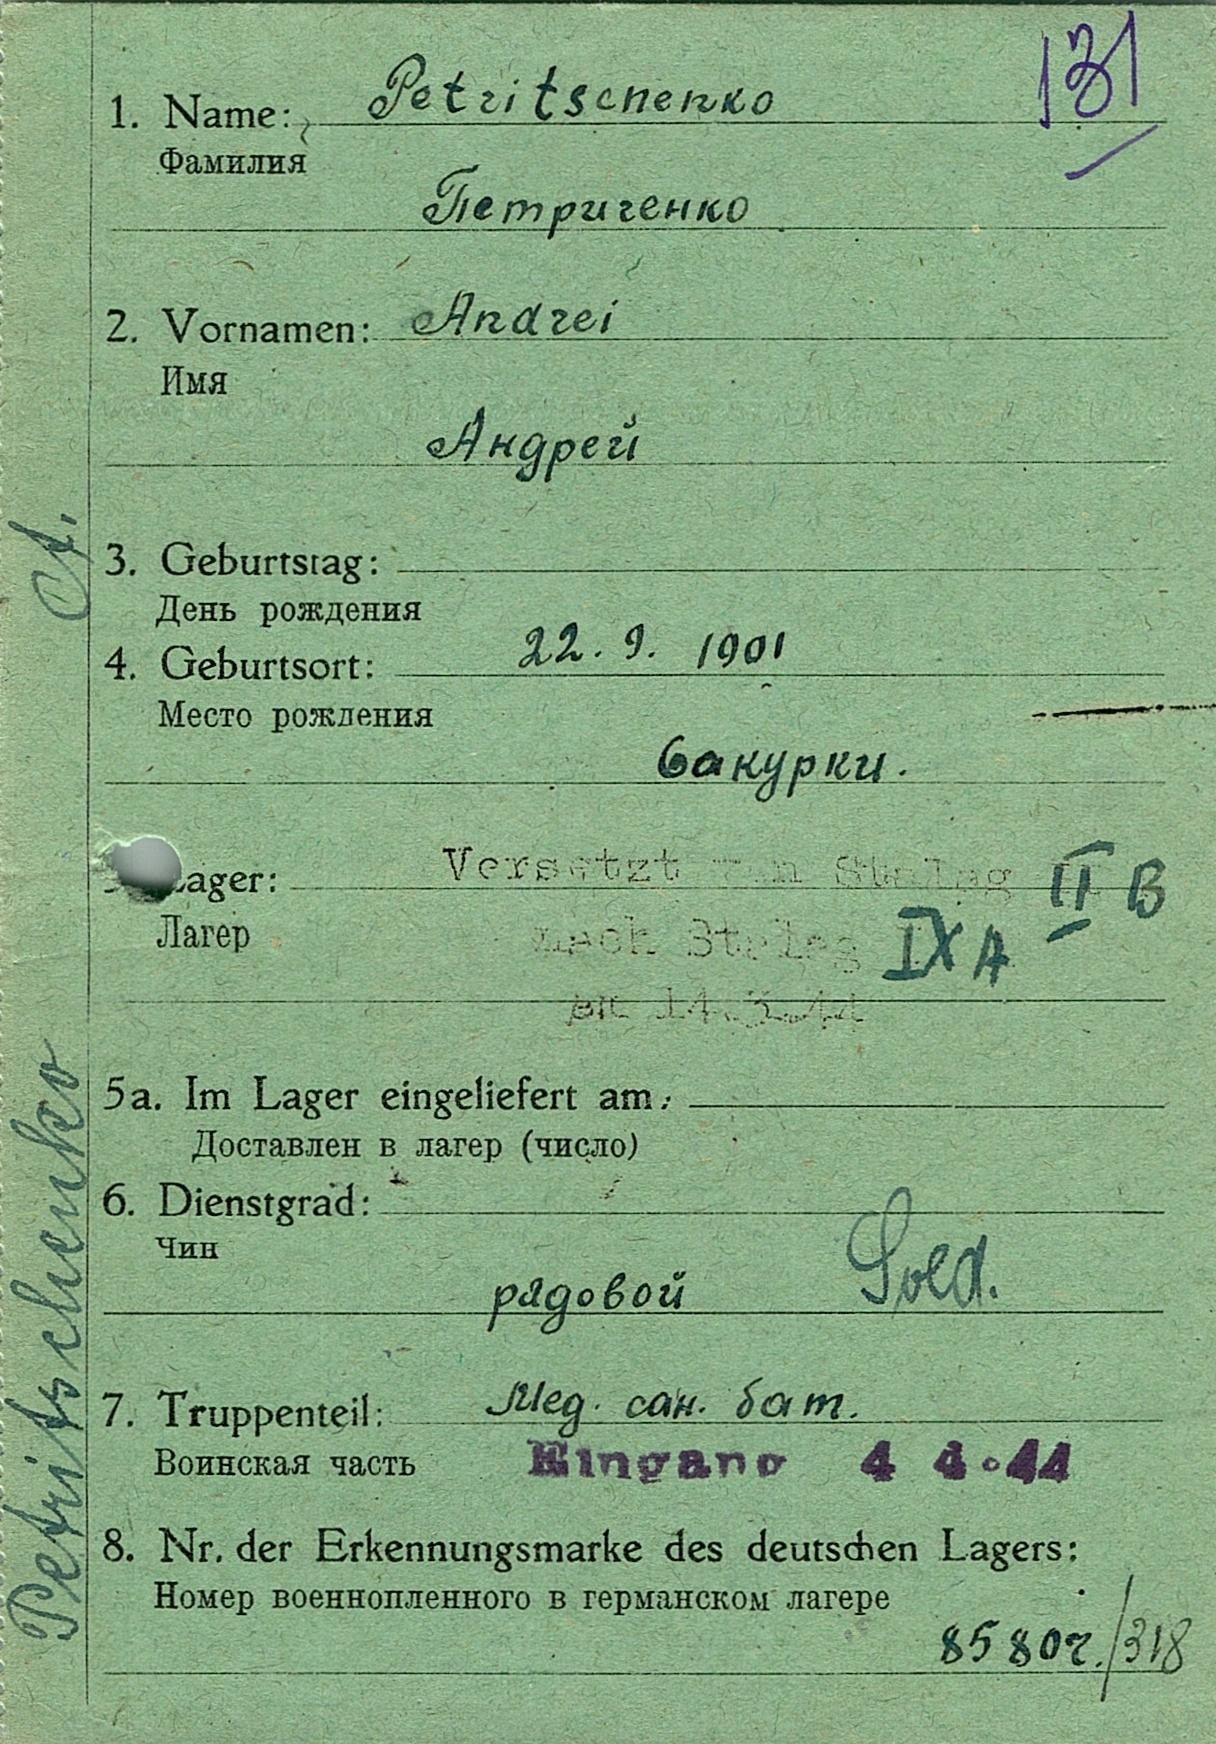 131
1. Name: Petritschenko
Фамилия
Петриченко
2. Vornamen: Andrei
Имя
Андрей
3. Geburtstag:
День рождения
22. 9. 1901
4. Geburtsort:
Место рождения
бакурки.
Lager: Versetzt von Stalag II B
Лагер
nach Stalag IX A
am 14.3.44
5a. Im Lager eingeliefert am:
Доставлен в лагер (число)
6. Dienstgrad:
Чин
рядовой Sold.
7. Truppenteil: Мед. сан. бат.
Воинская часть Eingang 4 4.44
8. Nr. der Erkennungsmarke des deutschen Lagers:
Номер военнопленного в германском лагере
/318
Petritschenko A.